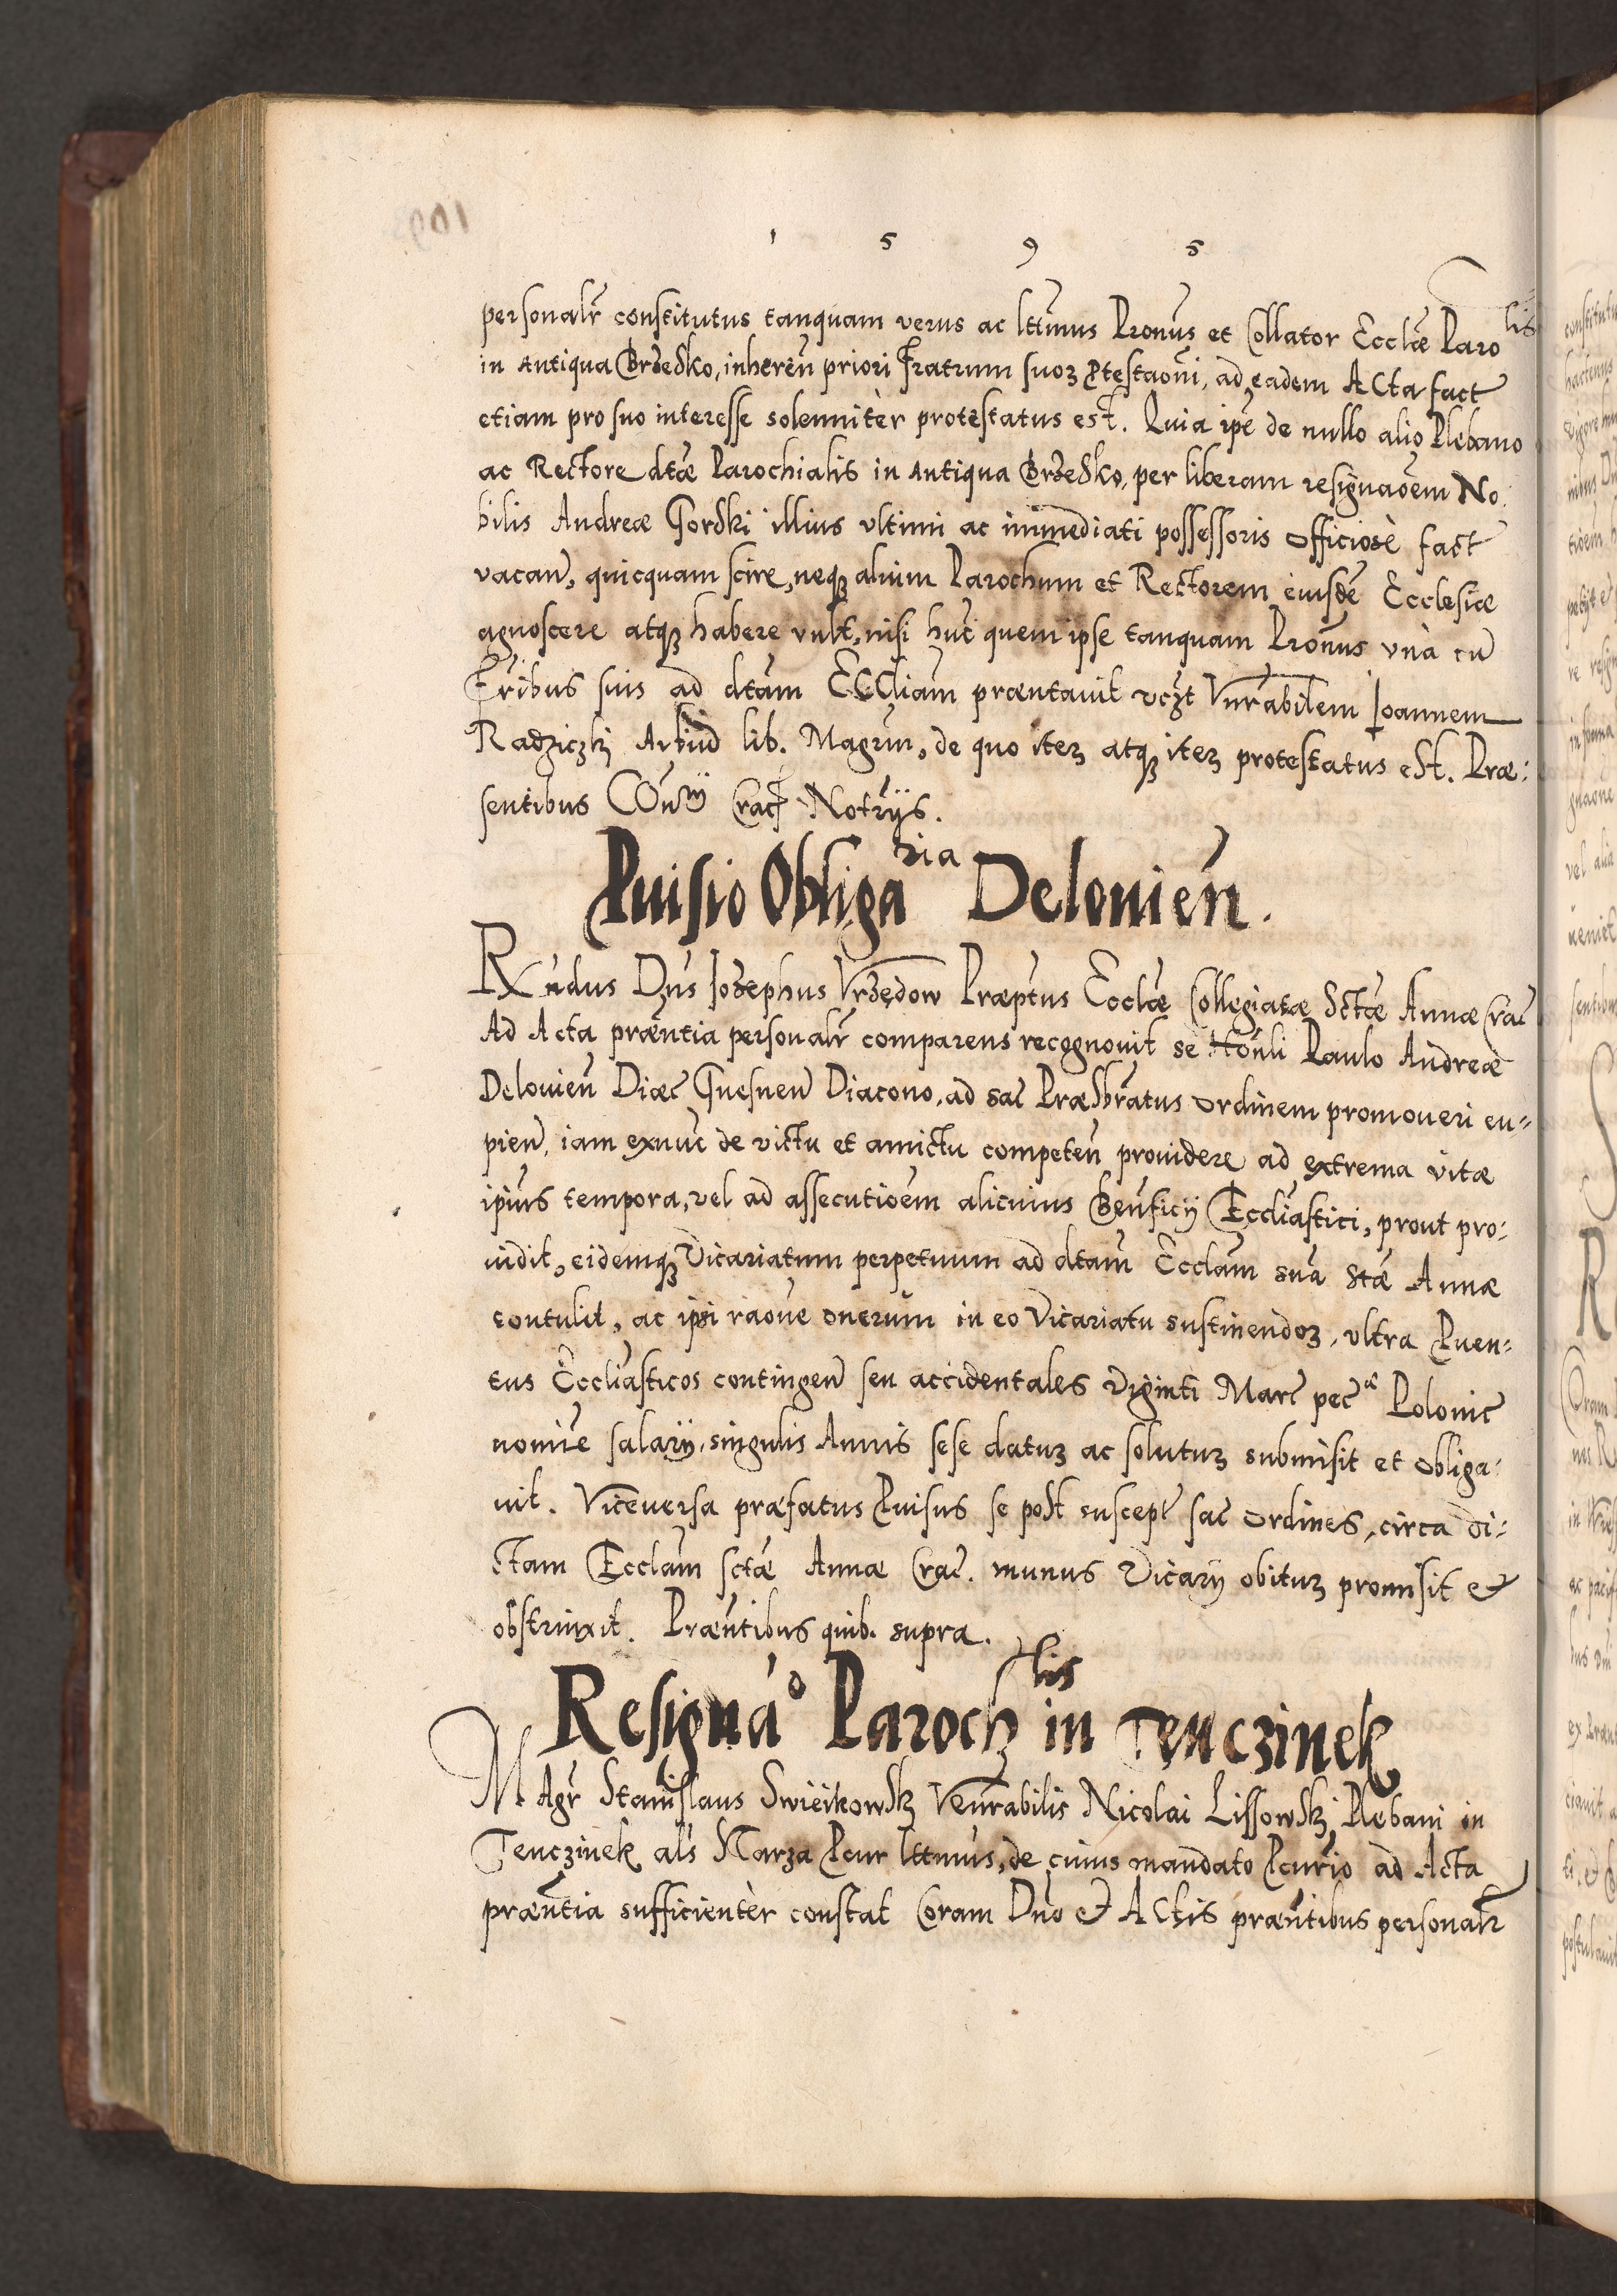 1 5 9 5
personalr constitutus tanquam verus ac lttimus Pronus et Collator Ecclæ Parolis
in Antiqua Brzesko, inheren priori Fratrum suoꝝ Ptestaoni, ad eadem ACta fact
etiam pro suo interesse solenniter protestatus est. Quia ipe de nullo alio Plebano
ac Rectore dtæ Parochialis in Antiqua Brzesko, per liberam resignaoem No:
bilis Andreæ Gorski illius vltimi ac immediati possessoris officiose fact
vacan, quicquam scire, neqꝫ alium Parochum et Rectorem eiusde Ecclesiæ
agnoscere atqꝫ habere vult, nisi hunc quem ipse tanquam Pronus vnà cu
Fribus suis ad dtam ECCliam præntauit vczt Vnrabilem Ioannem
Radziczki Artiud lib. Magrum, de quo iteꝝ atqꝫ iteꝝ protestatus est. Præ:
sentibus COnrij Crac Notrijs.
Puisio Obligaria Delonien.
RXndus Dns Iosephus Vrzędow Præptus Ecclæ Collegiatæ Sctæ Annæ Crac
Ad Acta præntia personalr comparens recognouit se Honli Paulo Andreæ
Delonien Diæc Gnesnen Diacono, ad sac Præsbratus ordinem promoueri cu=
pien, iam exnunc de victu et amictu competen prouidere ad extrema vitæ
ipius tempora, vel ad assecutioem alicuius Benficij Eccliastici, prout pro:
uidit, eidemqꝫ Vicariatum perpetuum ad dtam Ecclam sua Stæ Annæ
contulit, ac ipsi raone onerum in eo Vicariatu sustinendoꝝ, vltra Puen=
tus Eccliasticos contingen seu accidentales Viginti Marc pecæ Polonic
nomine salarij, singulis Annis sese datuꝝ ac solutuꝝ submisit et obliga:
uit. Viceuersa præfatus Puisus se post suscept sac ordines, circa di:
ctam Ecclam sctæ Annæ Crac. munus Vicarij obituꝝ promisit et
obstrinxit. Præntibus quib. supra.
Resignao Parochlis in Tenczinek
MAgr Stanislaus Swieikowski Venrabilis Nicolai Lissowski Plebani in
Tenczinek als Starza Pcur lttimus, de cuius mandato Pcurio ad Acta
præntia sufficienter constat Coram Dno et ACtis præntibus personalr